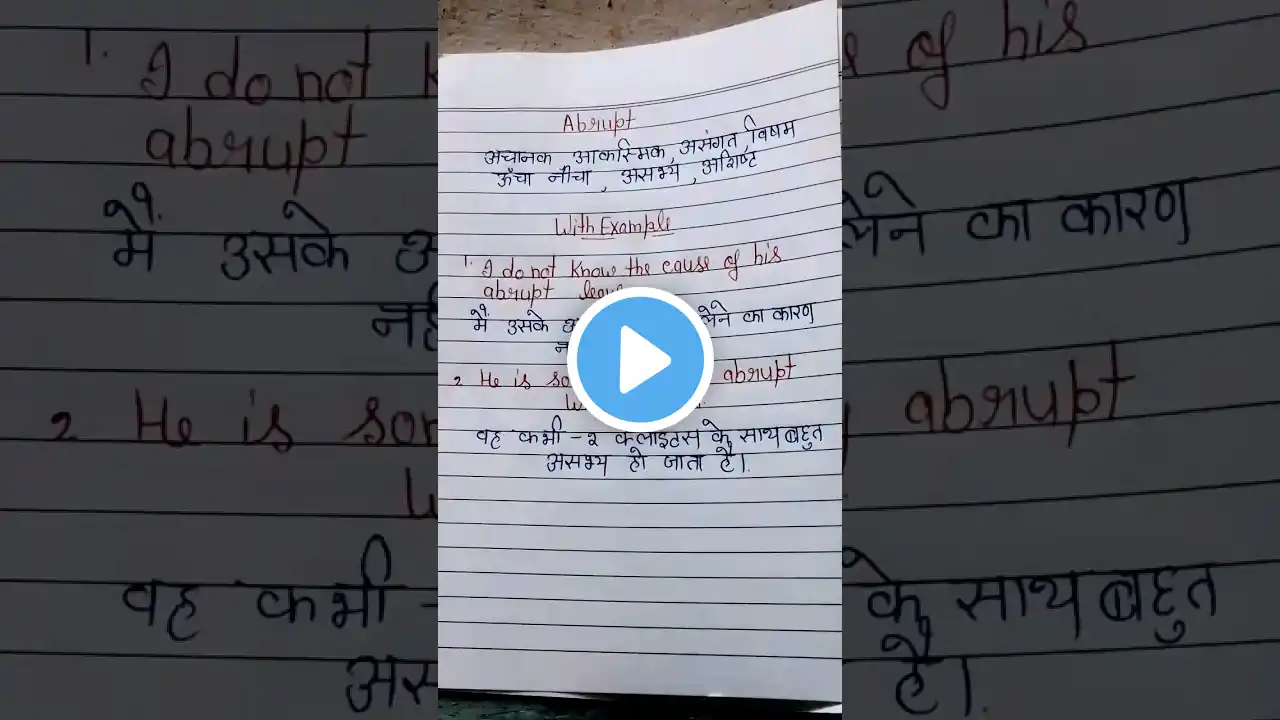 Abrupt
अचानक, आकस्मिक, असंगत, विषम
ऊँचा नीचा, असभ्य, अशिष्ट
With Example
1. I do not know the cause of his
abrupt
मैं उसके लेने का कारण
2 He is abrupt
वह कभी-२ क्लाइंटस के साथ बहुत
असभ्य हो जाता है।